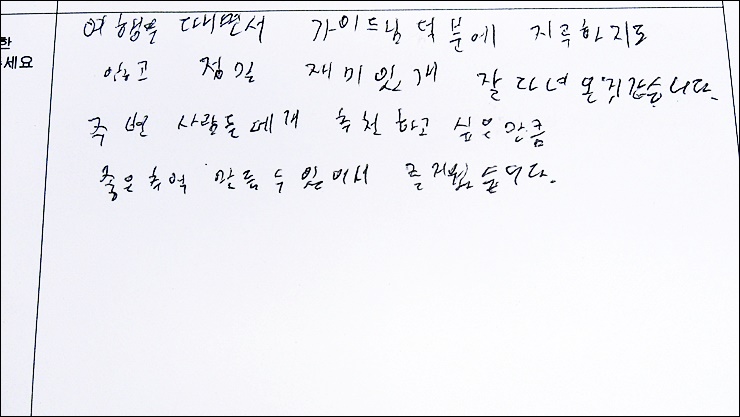 한
세요
여행을 때면서 가이드님 덕분에 지루하지도
않고 점일 재미있개 잘 다녀온거같습니다.
주변 사람들에개 추천하고 싶은만큼
좋은추억 만들수있어서 즐거웠습니다.